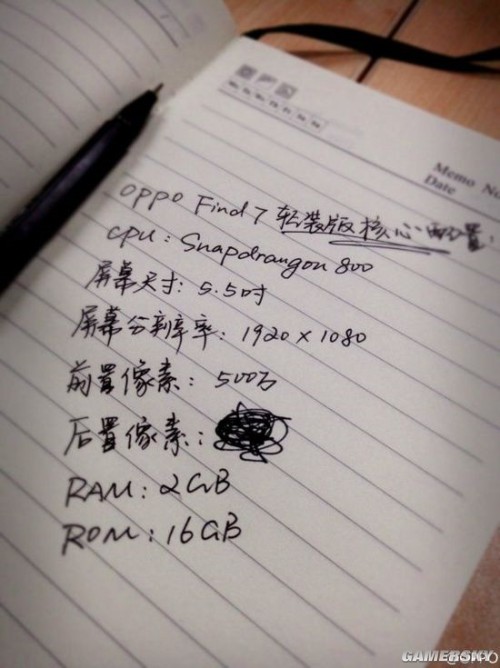 Mo Tu We Th Fr Sa Su
Memo No.
Date
OPPO Find 7 轻装版核心配置:
CPU: Snapdrangon 800
屏幕尺寸: 5.5吋
屏幕分辨率: 1920 × 1080
前置像素: 500万
后置像素:
RAM: 2GB
ROM: 16GB
GAMERSKY